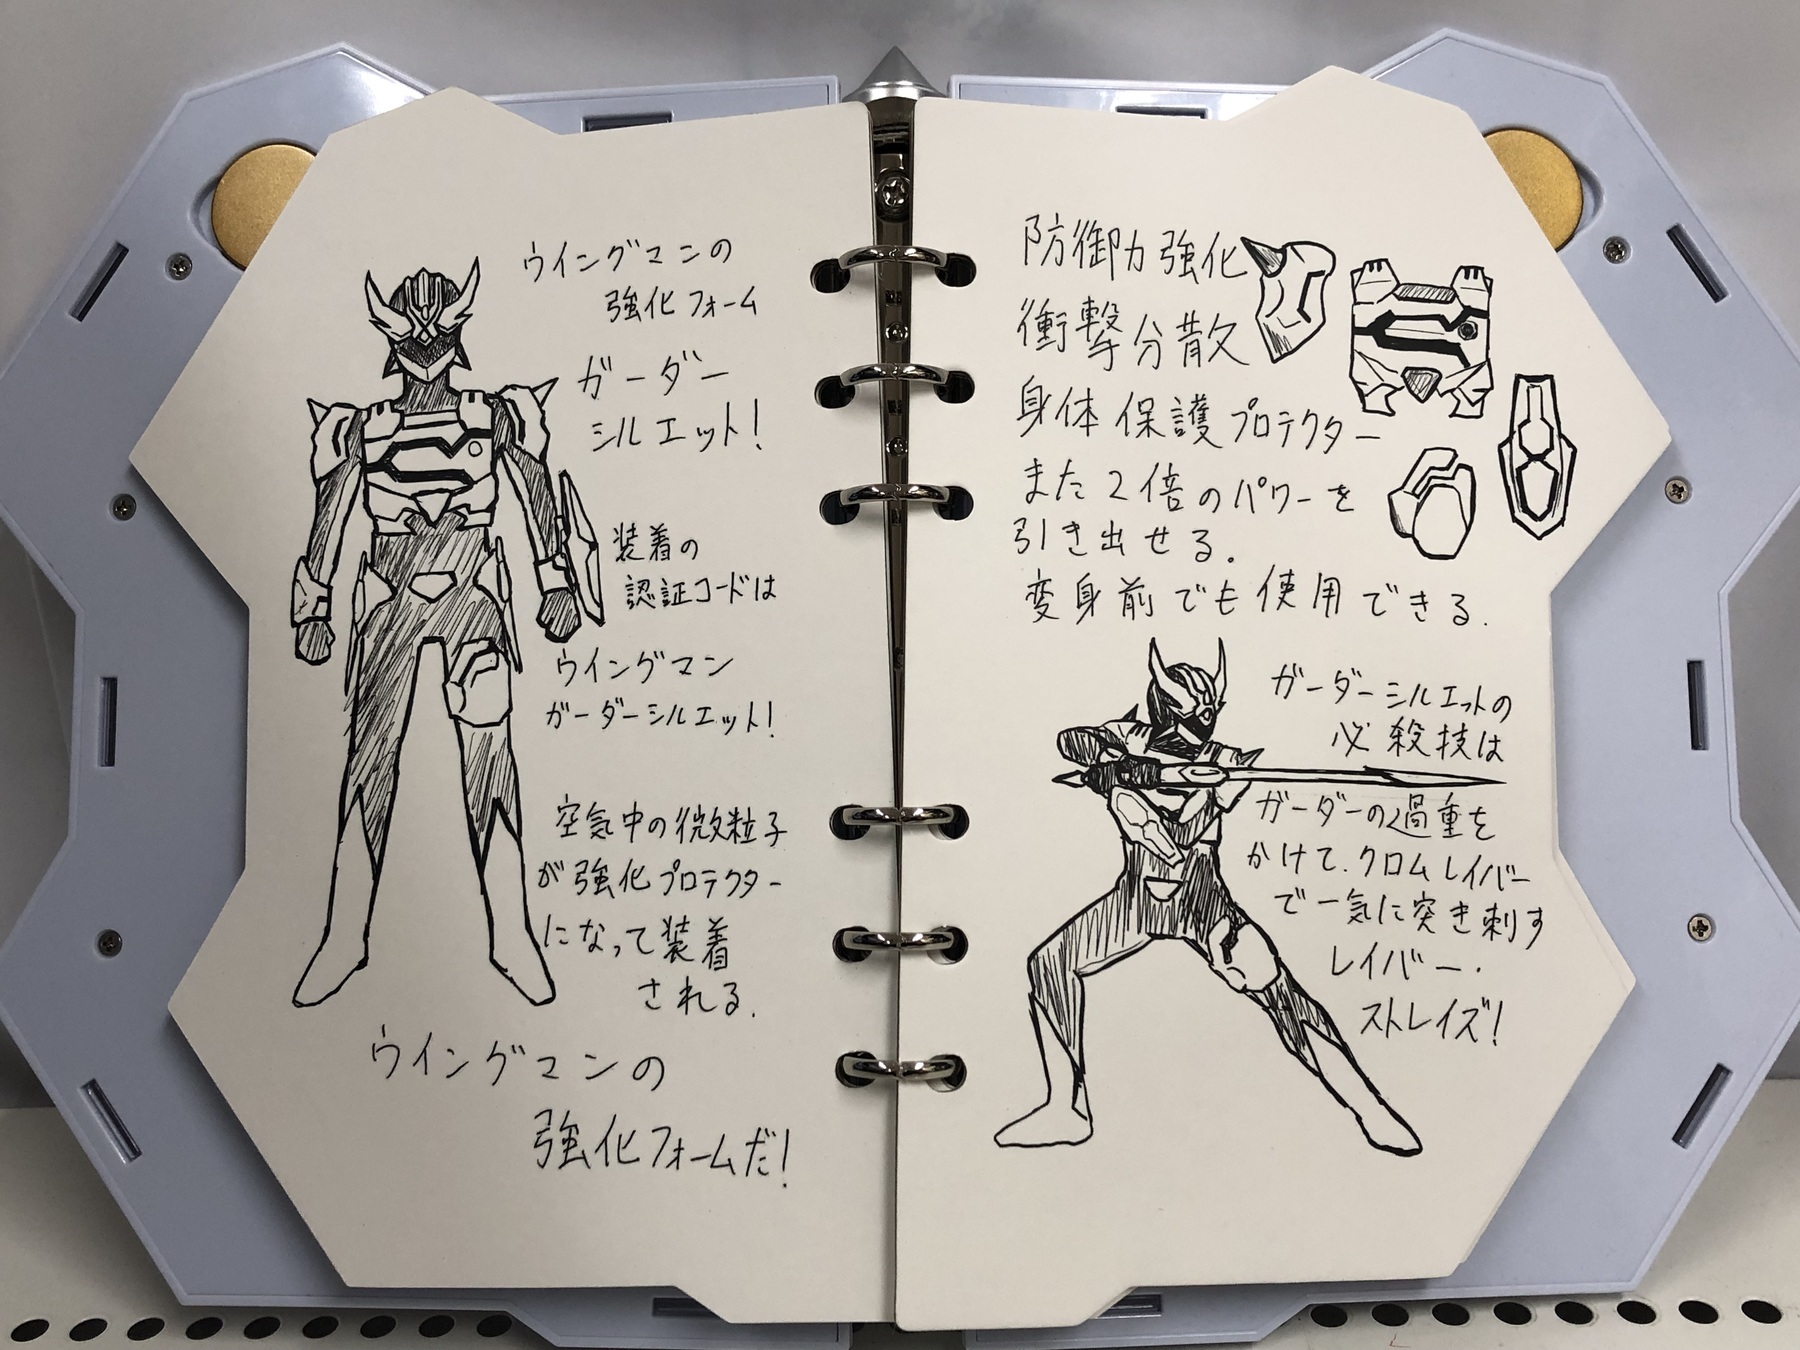 ウイングマンの
強化フォーム
ガーダー
シルエット!
装着の
認証コードは
ウイングマン
ガーダーシルエット!
空気中の微粒子
が強化プロテクター
になって装着
される.
ウイングマンの
強化フォームだ!
防御力強化
衝撃分散
身体保護プロテクター
また2倍のパワーを
引き出せる.
変身前でも使用できる.
ガーダーシルエットの
必殺技は
ガーダーの過重を
かけて.クロムレイバー
で一気に突き刺す
レイバー・
ストレイズ!